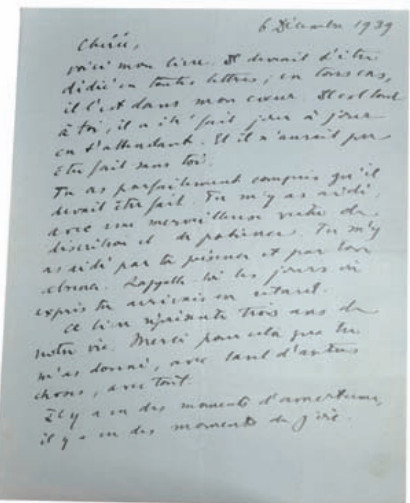 6 Décembre 1939
Chérie,
voici mon livre. Il devrait d'être
dédié en toutes lettres; en tous cas,
il l'est dans mon cœur. Il est tout
à toi, il a été fait jour à jour
en t'attendant. Et il n'aurait pas
été fait sans toi.
Tu as parfaitement compris qu'il
devait être fait. Tu m'y as aidé,
avec une merveilleuse de
discrétion et de patience. Tu m'y
as aidé par ta présence et par ton
absence. Rappelle toi les jours où
exprès tu arrivais en retard.
Ce livre représente trois ans de
notre vie. Merci pour cela que tu
m'as donné, avec tant d'autres
choses, avec tout.
Il y a eu des moments d'amertume,
il y a eu des moments de joie.